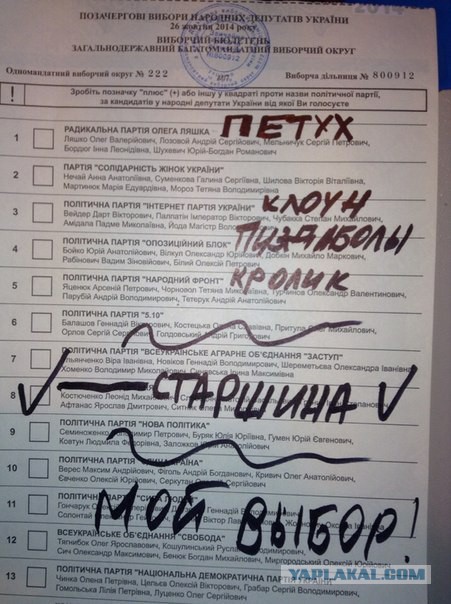 ПОЗАЧЕРГОВІ ВИБОРИ НАРОДНИХ ДЕПУТАТІВ УКРАЇНИ
26 жовтня 2014 року
ВИБОРЧИЙ БЮЛЕТЕНЬ
ЗАГАЛЬНОДЕРЖАВНИЙ БАГАТОМАНДАТНИЙ ВИБОРЧИЙ ОКРУГ
Одномандатний виборчий округ № 222 Виборча дільниця № 800912
! Зробіть позначку "плюс" (+) або іншу у квадраті проти назви політичної партії,
за кандидатів у народні депутати України від якої Ви голосуєте
1 РАДИКАЛЬНА ПАРТІЯ ОЛЕГА ЛЯШКА ПЕТУХ
Ляшко Олег Валерійович, Лозовой Андрій Сергійович, Мельничук Сергій Петрович,
Бордюг Інна Леонідівна, Шухевич Юрій-Богдан Романович
2 ПАРТІЯ "СОЛІДАРНІСТЬ ЖІНОК УКРАЇНИ"
Нечай Анна Анатоліївна, Суменкова Галина Сергіївна, Шилова Вікторія Віталіївна,
Мартинюк Марія Едуардівна, Мороз Тетяна Володимирівна
3 ПОЛІТИЧНА ПАРТІЯ "ІНТЕРНЕТ ПАРТІЯ УКРАЇНИ" КЛОУН
Вейдер Дарт Вікторович, Палпатін Імператор Вікторович, Чубакка Степан Михайлович,
Амідала Падме Миколаївна, Йода Магістр
4 ПОЛІТИЧНА ПАРТІЯ "ОПОЗИЦІЙНИЙ БЛОК" ПИЗДАБОЛЫ
Бойко Юрій Анатолійович, Вілкул Олександр Юрійович, Добкін Михайло Маркович,
Рабінович Вадим Зіновійович, Білий Олексій Петрович
5 ПОЛІТИЧНА ПАРТІЯ "НАРОДНИЙ ФРОНТ" КРОЛИК
Яценюк Арсеній Петрович, Чорновол Тетяна Миколаївна, Турчинов Олександр Валентинович,
Парубій Андрій Володимирович, Тетерук Андрій Анатолійович
6 ПОЛІТИЧНА ПАРТІЯ "5.10"
Балашов Геннадій Вікторович, Костецька Михайлович,
Орлов Сергій Сергійович, Голдовський Андрій Григорович
7 ПОЛІТИЧНА ПАРТІЯ "ВСЕУКРАЇНСЬКЕ АГРАРНЕ ОБ'ЄДНАННЯ "ЗАСТУП"
Ульянченко Віра Іванівна, Новіков Геннадій Володимирович, Шереметьєва Олександра Іванівна,
Хоменко Володимир Миколайович, Максимівна
8 СТАРШИНА
Костюченко Леонід Михайлович
Афтанас Ярослав Дмитрович, Ситник
9 ПОЛІТИЧНА ПАРТІЯ "НОВА ПОЛІТИКА"
Семиноженко Володимир Петрович, Буряк Юлія Юріївна, Гумен Юрій Євгенович,
Ковтун Людмила Федорівна, Заложков
10 УКРАЇНА"
Верес Максим Андрійович, Фіголь Андрій Богданович, Кривич Олег Анатолійович,
Євченко Олексій Юрійович, Серкутан
11 ПОЛІТИЧНА ПАРТІЯ "СИЛА ЛЮДЕЙ"
Гончарук Геннадій Володимирович
МОЙ ВЫБОР!
12 ВСЕУКРАЇНСЬКЕ ОБ'ЄДНАННЯ "СВОБОДА"
Тягнибок Олег Ярославович, Кошулинський Руслан Володимирович,
Сич Олександр Максимович, Бенюк Богдан Михайлович, Мирошниченко Ігор Михайлович
13 ПОЛІТИЧНА ПАРТІЯ "НАЦІОНАЛЬНА ДЕМОКРАТИЧНА ПАРТІЯ УКРАЇНИ"
Чинка Олена Петрівна, Целька Олексій Вікторович, Грабов
Гомольська Лілія Петрівна, Глущенко Сергій
YAPLAKAL.COM